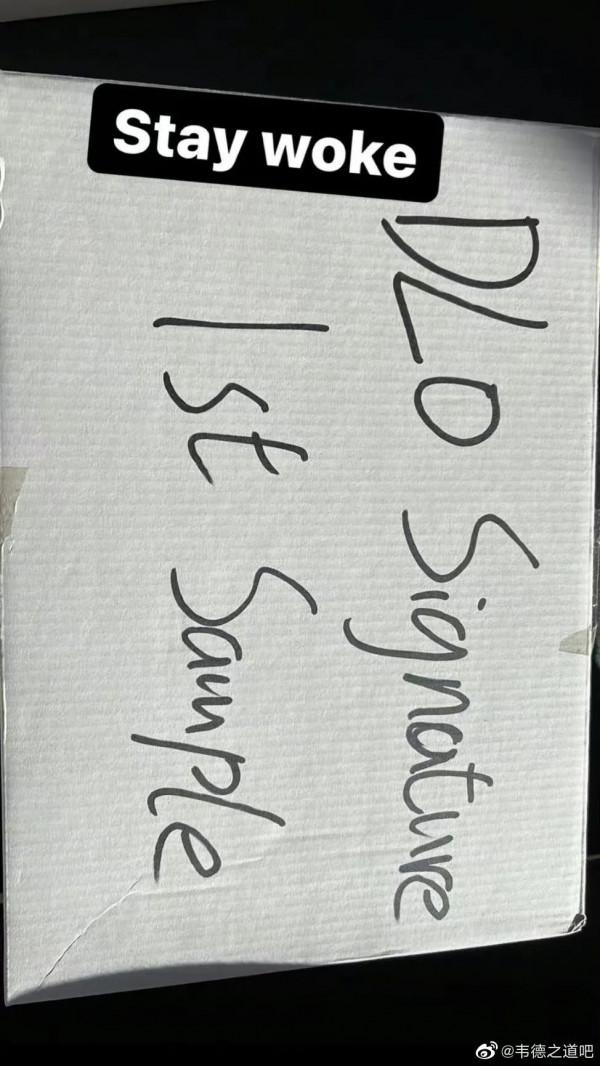 Stay woke
DLO Signature
1st Sample
@韦德之道吧